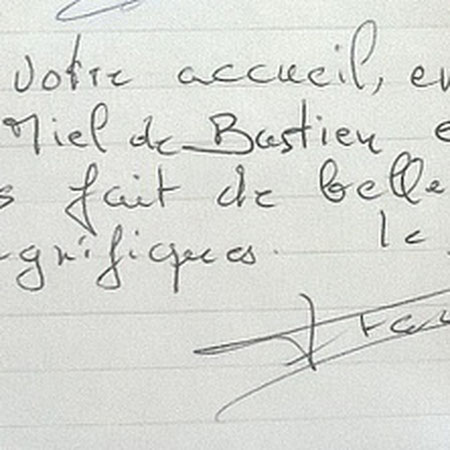 votre accueil, en
Miel de Bastien e
s fait de belle
gnifiques. le